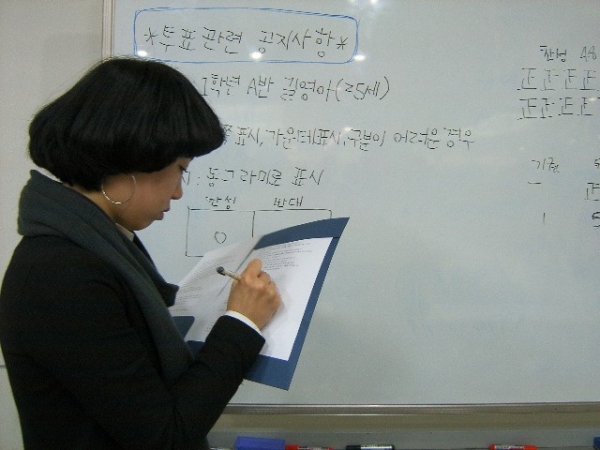 *투표 관련 공지사항*
1학년 A반 길영아(25세)
표시, 가운데표시, 구분이 어려운 경우
: 동그라미로 표시
찬성 반대
○
찬성
正 正 正 正
正 正 正 正
기권
一 正
1 5